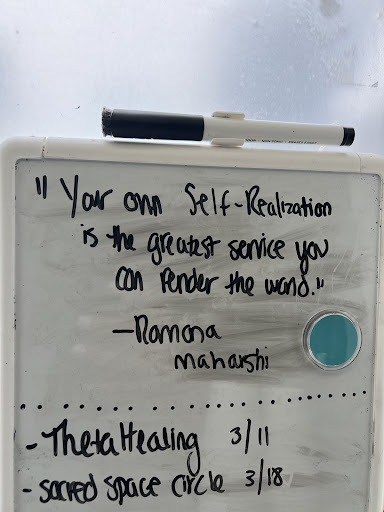 "Your own Self-Realization
is the greatest service you
can render the world."
—Ramana
maharshi
- ThetaHealing 3/11
- sacred space circle 3/18